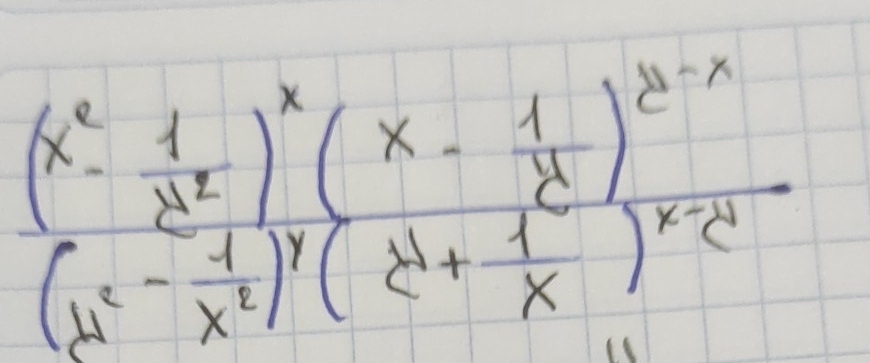 (x² - 1/y²)^x (x - 1/y)^(y-x)
(y² - 1/x²)^y (y + 1/x)^(x-y)